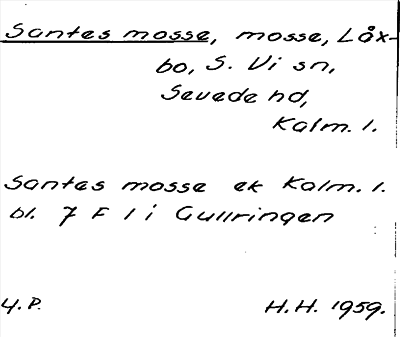 Santes mosse, mosse, Låx-
bo, S. Vi sn,
Sevede hd,
Kalm. l.
Santes mosse ek Kalm. l.
bl. 7 F 1 i Gullringen
4. P. H.H. 1959.